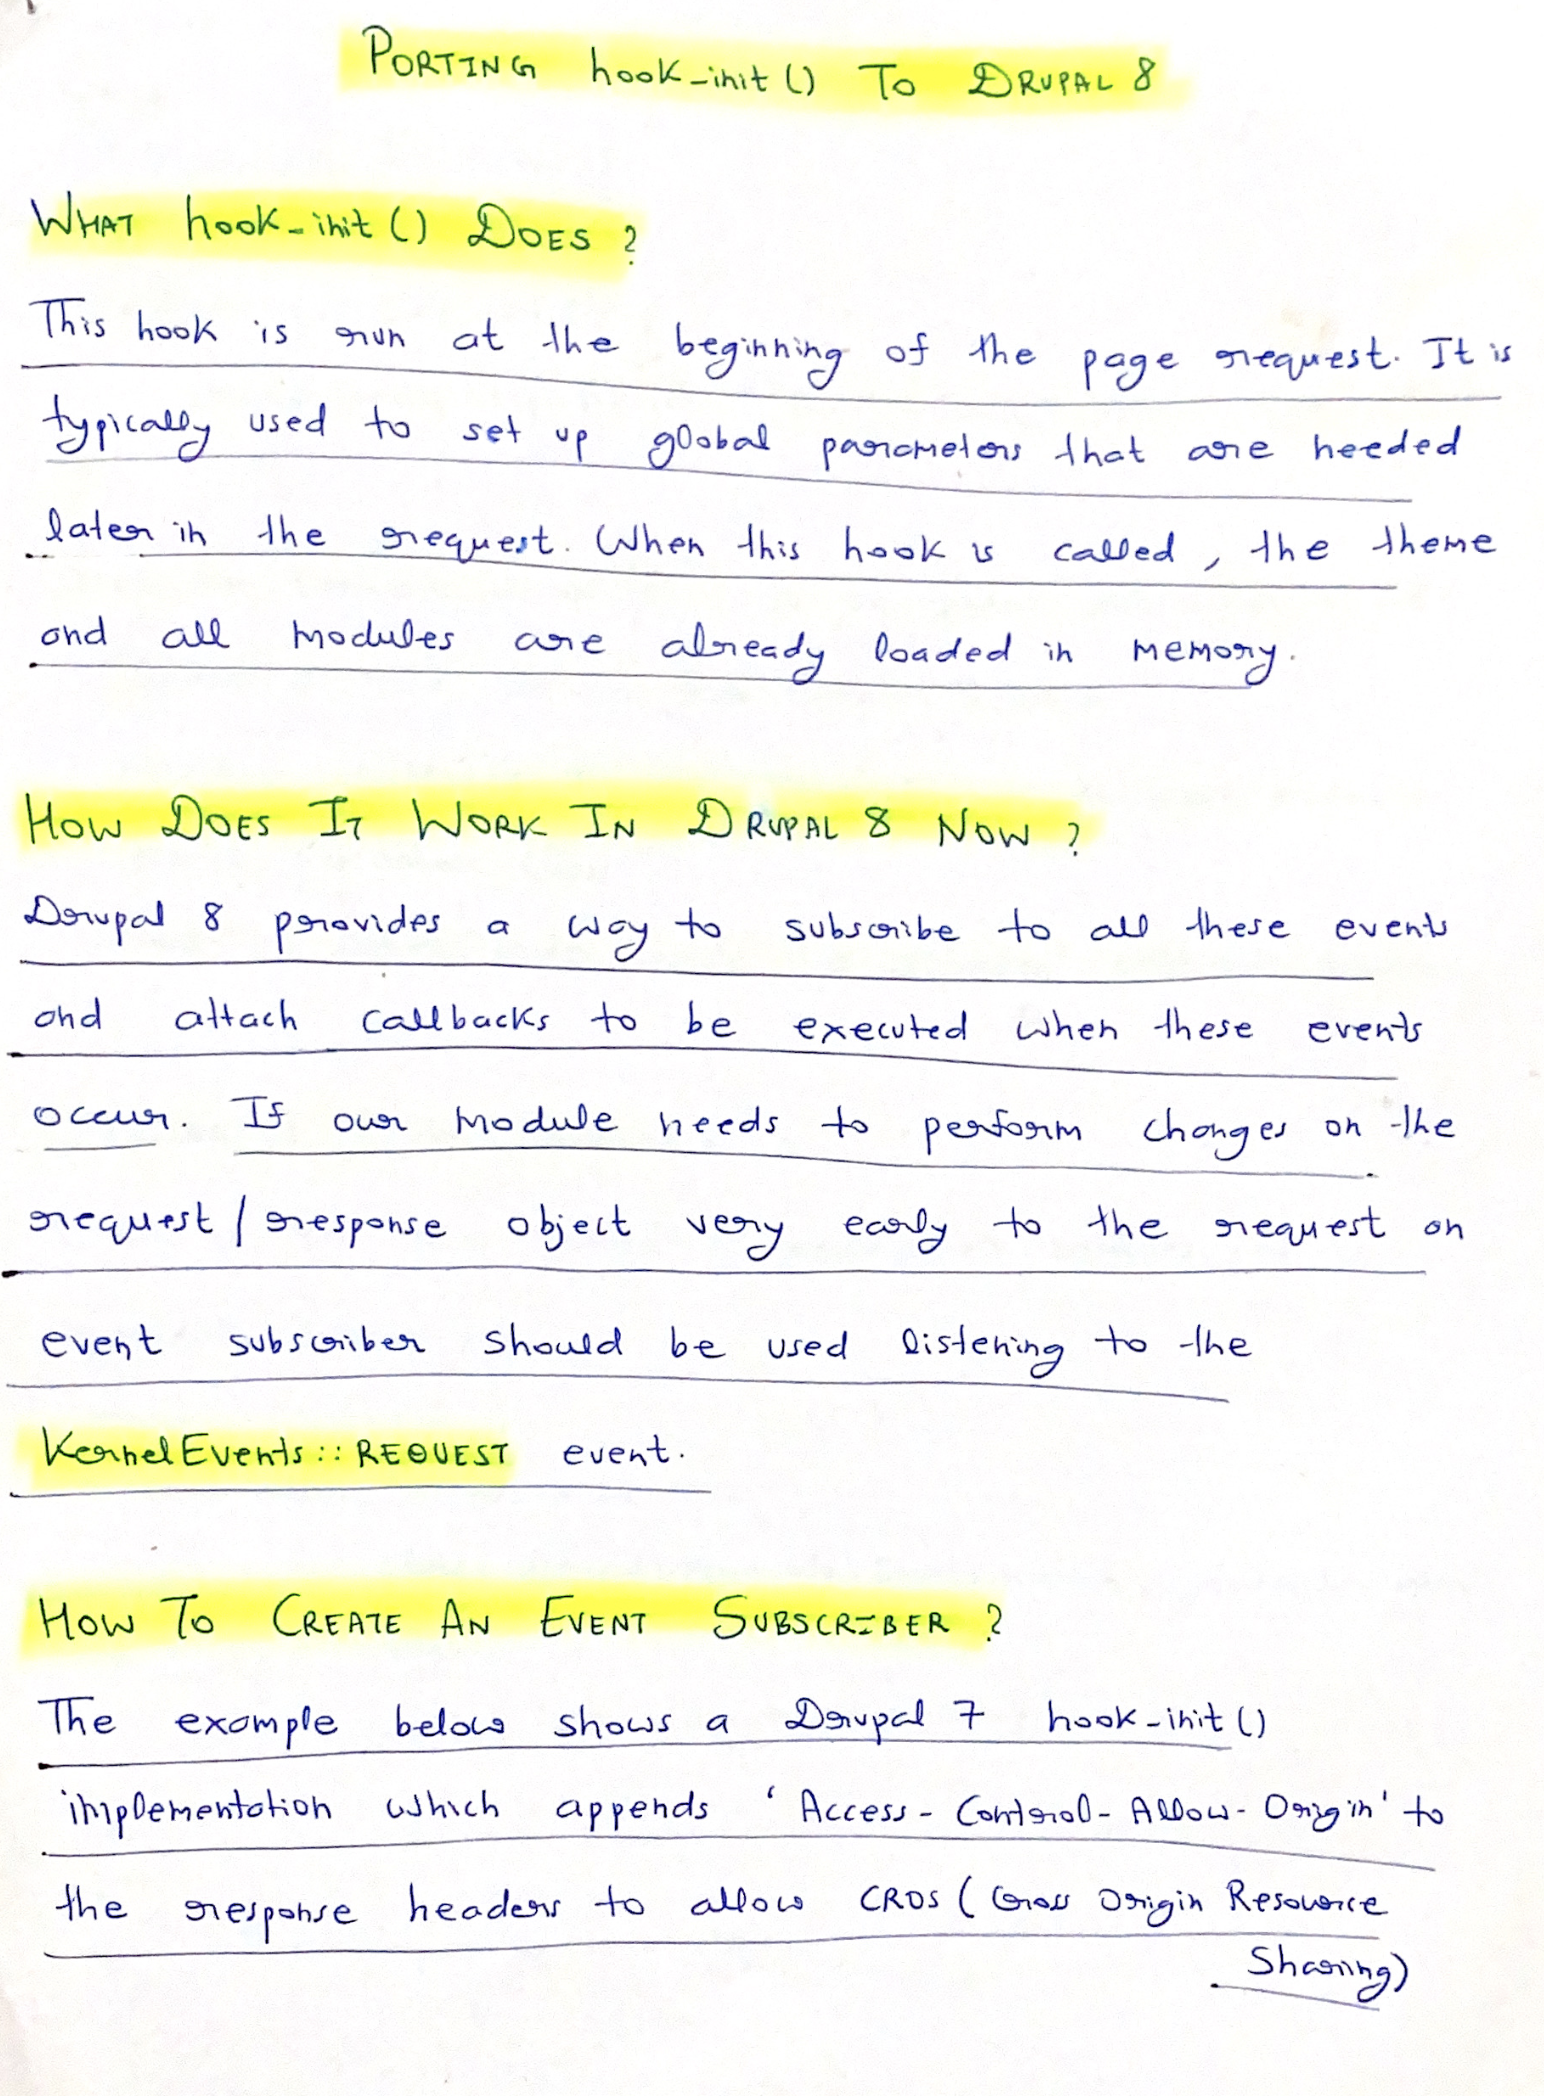 PORTING hook_init() TO DRUPAL 8
WHAT hook_init() DOES ?
This hook is run at the beginning of the page request. It is
typically used to set up global parameters that are needed
later in the request. When this hook is called, the theme
and all modules are already loaded in memory.
HOW DOES IT WORK IN DRUPAL 8 NOW ?
Drupal 8 provides a way to subscribe to all these events
and attach callbacks to be executed when these events
occur. If our module needs to perform changes on the
request / response object very early to the request an
event subscriber should be used listening to the
KernelEvents :: REQUEST event.
HOW TO CREATE AN EVENT SUBSCRIBER ?
The example below shows a Drupal 7 hook_init()
implementation which appends 'Access-Control-Allow-Origin' to
the response headers to allow CROS (Cross Origin Resource
Sharing)